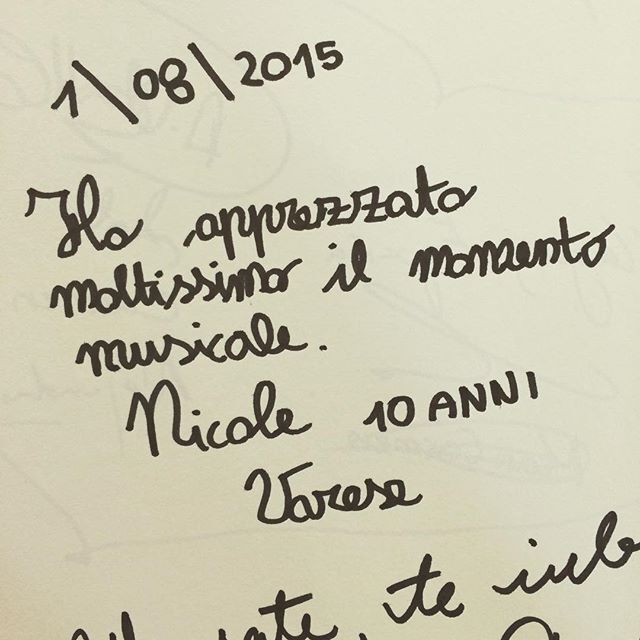 1\08\2015
Ho apprezzato
moltissimo il momento
musicale.
Nicole 10 ANNI
Varese
te